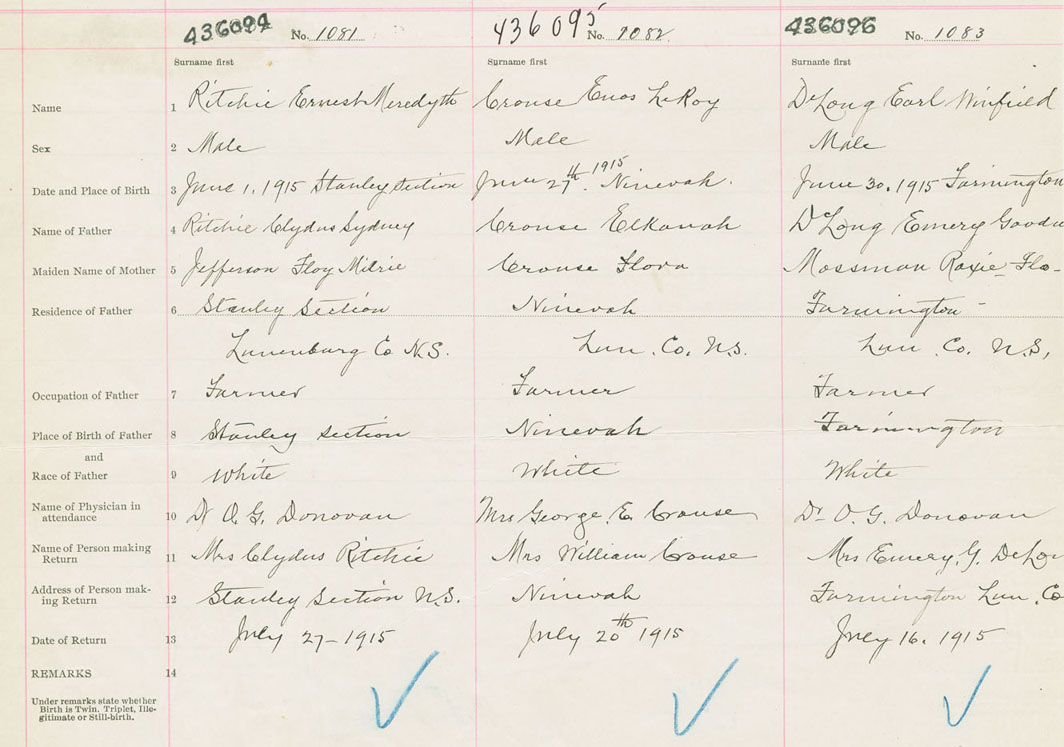 436094 No. 1081 436095 No. 1082. 436096 No. 1083
Surname first Surname first Surname first
Name 1 Ritchie Ernest Meredyth Crouse Enos LeRoy DeLong Earl Winfield
Sex 2 Male Male Male
Date and Place of Birth 3 June 1, 1915 Stanley Section June 27th 1915. Ninevah. June 30, 1915 Farmington
Name of Father 4 Ritchie Clydus Sydney Crouse Elkanah DeLong Emery
Maiden Name of Mother 5 Jefferson Floy Crouse Flora Mossman Roxie Flo-
Residence of Father 6 Stanley Section Ninevah Farmington
Lunenburg Co N.S. Lun. Co. N.S. Lun. Co. N.S,
Occupation of Father 7 Farmer Farmer Farmer
Place of Birth of Father 8 Stanley Section Ninevah Farmington
and
Race of Father 9 White White White
Name of Physician in
attendance 10 Dr O. G. Donovan Mrs George. E. Crouse Dr O. G. Donovan
Name of Person making
Return 11 Mrs Clydus Ritchie Mrs William Crouse Mrs Emery. G. DeLon
Address of Person mak-
ing Return 12 Stanley Section N.S. Ninevah Farmington Lun. Co
Date of Return 13 July 27-1915 July 20th 1915 July 16. 1915
REMARKS 14
Under remarks state whether
Birth is Twin, Triplet, Ille-
gitimate or Still-birth.